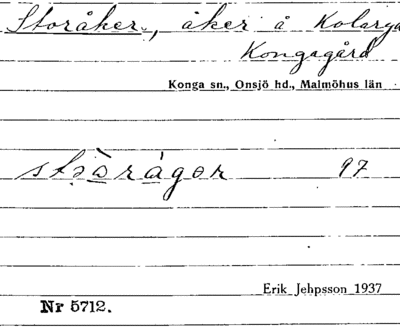 Storåker, åker å
Kongagård
Konga sn., Onsjö hd., Malmöhus län
97
Erik Jehpsson 1937
Nr 5712.